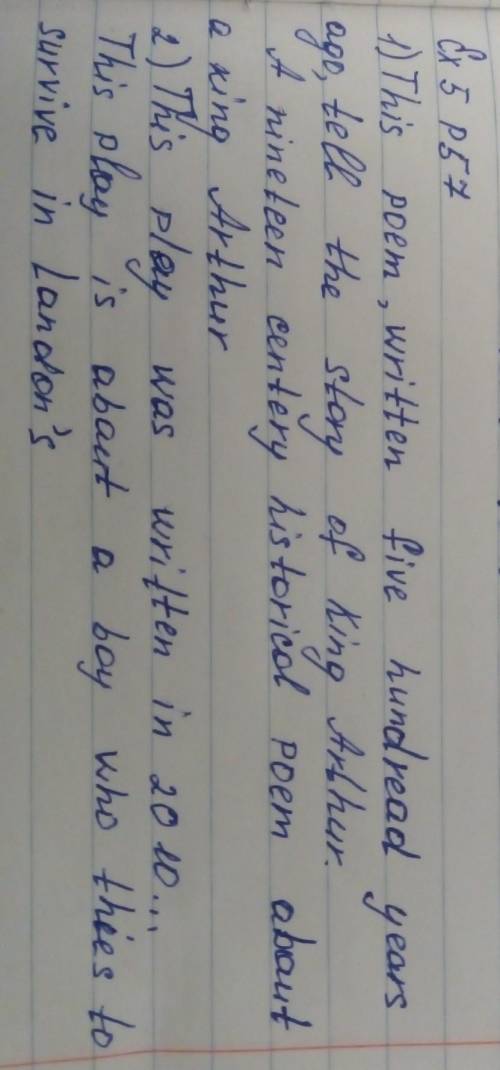 Ex 5 p 57
1) This poem, written five hundread years
ago, tell the story of King Arthur.
A nineteen centery historical poem abaut
a king Arthur
2) This play was written in 2010...
This play is abaut a boy who thies to
survive in Landon's